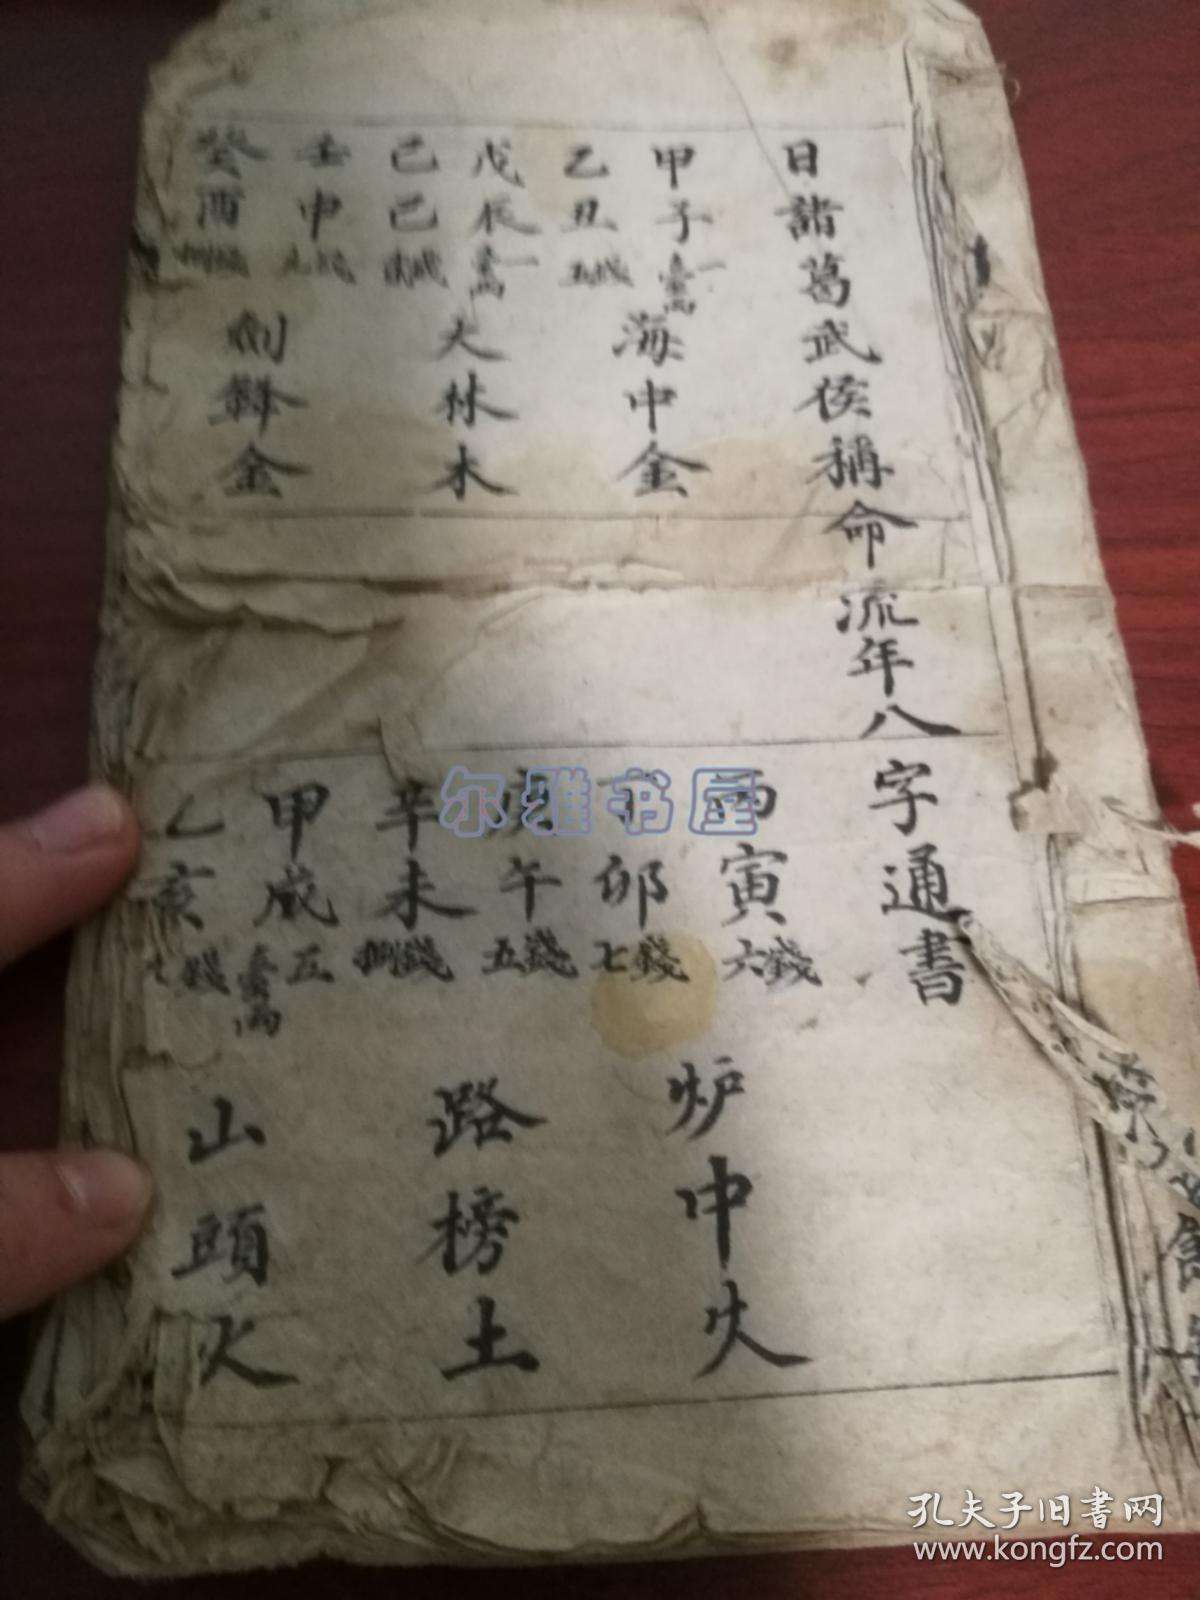 日諸葛武侯稱命流年八字通書
甲子 壹兩
乙丑 五錢
海中金
戊辰 壹兩
己巳
大林木
壬申
癸酉 捌錢
劍鋒金
丙寅 六錢
丁卯 七錢
炉中火
庚午 五錢
辛未 捌錢
路榜土
甲戌 壹兩五
乙亥 錢
山頭火
尔雅书屋
孔夫子旧书网
www.kongfz.com